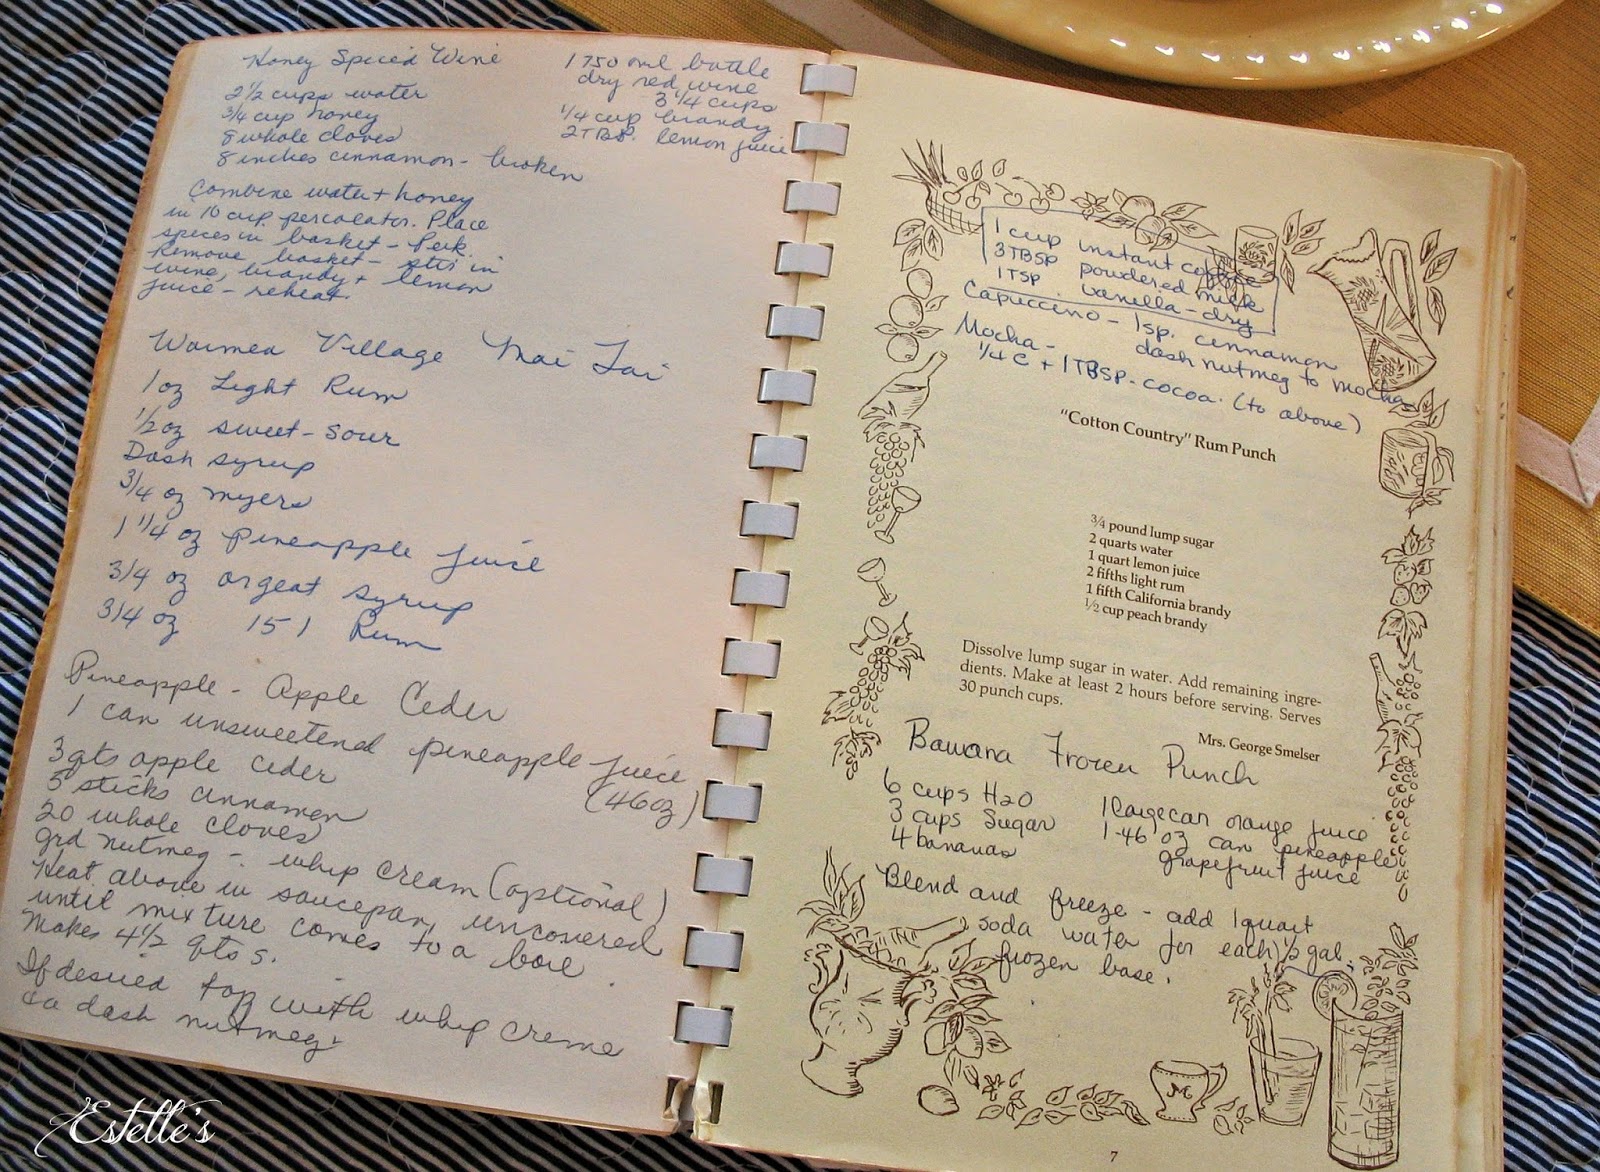 Honey Spiced Wine
2 1/2 cups water
3/4 cup honey
8 whole cloves
8 inches cinnamon - broken
1 750 ml bottle
dry red wine
3 1/4 cups
1/4 cup brandy
2 TBSP. lemon juice
Combine water + honey
in 10 cup percolator. Place
spices in basket - Perk.
Remove basket - stir in
wine, brandy + lemon
juice - reheat.
Waimea Village Mai Tai
1 oz Light Rum
1/2 oz sweet-sour
Dash syrup
3/4 oz myers
1 1/4 oz pineapple juice
3/4 oz orgeat syrup
3/4 oz 151 Rum
Pineapple - Apple Ceder
1 can unsweetened pineapple juice
(46 oz)
3 qts apple ceder
5 sticks cinnamen
20 whole cloves
grd nutmeg - whip cream (optional)
Heat above in saucepan, uncovered
until mixture comes to a boil
Makes 4 1/2 qts.
If desired top with whip creme
& a dash nutmeg.
1 cup instant coffee
3 TBSP powdered milk
1 TSP vanilla - dry
Capuccino - 1 sp. cinnamon
dash nutmeg to mocha
Mocha -
1/4 C + 1 TBSP. cocoa. (to above)
"Cotton Country" Rum Punch
3/4 pound lump sugar
2 quarts water
1 quart lemon juice
2 fifths light rum
1 fifth California brandy
1/2 cup peach brandy
Dissolve lump sugar in water. Add remaining ingre-
dients. Make at least 2 hours before serving. Serves
30 punch cups.
Mrs. George Smelser
Bawana Frozen Punch
6 cups H2O
3 cups Sugar
4 bananas
1 large can orange juice
1-46 oz can pineapple
grapefruit juice
Blend and freeze - add 1 quart
soda water for each 1/2 gal.
frozen base.
M
7
Estelle's